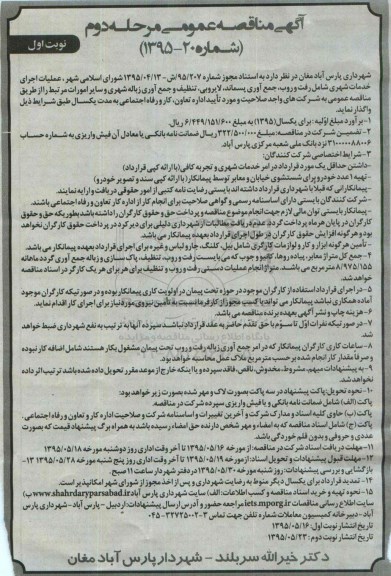 آگهی مناقصه عمومی مرحله دوم
(شماره ۲۰-۱۳۹۵)
نوبت اول
شهرداری پارس آباد مغان در نظر دارد به استناد مجوز شماره ۲۰۷/ش/۹۵-۱۳۹۵/۰۴/۱۳ شورای اسلامی شهر، عملیات اجرای
خدمات شهری شامل رفت و روب، جمع آوری پسماند، لایروبی، تنظیف و جمع آوری زباله شهری و سایر امورات مرتبط را از طریق
مناقصه عمومی به شرکت های واجد صلاحیت و مورد تأیید اداره تعاون، کار و رفاه اجتماعی به مدت یکسال طبق شرایط ذیل
واگذار نماید.
۱- برآورد مبلغ اولیه: برای یکسال (۱۳۹۵) به مبلغ ۶/۴۴۹/۱۵۱/۶۰۰ ریال.
۲- تضمین شرکت در مناقصه: مبلغ ۳۲۲/۵۰۰/۰۰۰ ریال ضمانت نامه بانکی یا معادل آن فیش واریزی به شماره حساب
۳۱۰۰۰۰۰۸۸۰۰۶ نزد بانک ملی شعبه مرکزی پارس آباد.
۳- شرایط اختصاصی شرکت کنندگان:
-داشتن حداقل یک مورد قرارداد در امر خدمات شهری و تجربه کافی (با ارائه کپی قرارداد)
- تهیه ۱ عدد خودرو برای شستشوی خیابان و معابر توسط پیمانکار (با ارائه کپی سند و تصویر خودرو)
-پیمانکارانی که قبلا با شهرداری قرارداد داشته اند بایستی رضایت نامه کتبی از امور حقوقی دریافت و ارایه نمایند.
-شرکت کنندگان بایستی دارای اساسنامه رسمی و گواهی صلاحیت برای انجام کار از اداره کار تعاون و رفاه اجتماعی باشند.
- پیمانکار بایستی توان مالی لازم جهت انجام موضوع مناقصه و پرداخت حق و حقوق کارگران را داشته باشد بطوریکه حق و حقوق
کارگران در پایان هر ماه پرداخت گردد. عدم دریافت مطالبات از شهرداری دلیلی برای دیرکرد در پرداخت حقوق کارگران نخواهد
بود و هرگونه افزایش حقوق کارگران در طول اجرای قرارداد بعهده پیمانکار می باشد.
- تأمین هرگونه ابزار و کار و لوازمات کارگری شامل بیل، کلنگ، جارو لباس و غیره برای اجرای قرارداد بعهده پیمانکار می باشد.
۴- جمع کل متراژ معابر، پیاده روها، کانیو و جوب که می بایست رفت و روب، تنظیف، پاک سازی و زباله جمع آوری گردد ماهانه
۸/۹۷۵/۱۵۵ متر مربع می باشد. متراژ انجام عملیات دستی رفت و روب و تنظیف برای هر برای هر یک کارگر در اسناد مناقصه
خواهد شد.
۵- در اجرای قرارداد استفاده از کارگران موجود در حوزه تحت پیمان در اولویت کاری پیمانکار بوده و در صورتیکه کارگران موجود
آماده همکاری نباشد پیمانکار می تواند با کسب مجوز از کارفرما نسبت به تأمین نیروی مورد نیاز برای اجرای کار اقدام نماید.
۶- هزینه چاپ و نشر آگهی بعهده برنده مناقصه می باشد.
۷- در صورتیکه نفرات اول تا سوم با حق تقدم حاضر به عقد قرارداد نباشد سپرده آنها به ترتیب به نفع شهرداری ضبط خواهد
شد.
۸- ساعات کاری کارگران پیمانکار که در امر جمع آوری زباله رفت و روب تحت پیمان مشغول بکار هستند شامل اضافه کار نبوده
و صرفا مقدار کار انجام شده بر حسب متر مربع ملاک عمل محاسبه خواهد بود.
۹- به پیشنهادات مبهم، مشروط، مخدوش، ناقص، فاقد سپرده و یا اینکه خارج از موعد مقرر تحویل داده شده باشد ترتیب اثر داده
نخواهد شد.
۱۰- نحوه تحویل: پاکت پیشنهاد در سه پاکت بصورت لاک و مهر شده بصورت زیر خواهد بود:
پاکت (الف) شامل ضمانت نامه بانکی و یا فیش واریزی سپرده شرکت در مناقصه.
پاکت (ب) حاوی کلیه اسناد و مدارک شرکت و آخرین تغییرات و اساسنامه شرکت و صلاحیت اداره کار و تعاون و رفاه اجتماعی.
پاکت (ج) شامل اسناد مناقصه که به امضاء و مهر شخص دارنده حق امضاء رسیده باشد به همراه برگ پیشنهاد قیمت که بصورت
عددی و حروفی و بدون قلم خوردگی باشد.
۱۱- مهلت دریافت اسناد شرکت در مناقصه: از مورخه ۱۳۹۵/۰۵/۱۶ تا آخر وقت اداری روز دوشنبه مورخه ۱۳۹۵/۰۵/۱۸
۱۲- مهلت قبول پیشنهادات و تحویل اسناد: از مورخه ۱۳۹۵/۰۵/۱۹ تا آخر وقت اداری روز پنج شنبه مورخه ۱۳۹۵/۰۵/۲۸ ۱۳-
بازگشایی و بررسی پیشنهادات: روز شنبه مورخه ۱۳۹۵/۰۵/۳۰ در دفتر شهردار ساعت ۱۱ صبح.
۱۴- تمدید قرارداد برای یکسال دیگر منوط به رضایت شهرداری و پس از اخذ مجوز از شورای شهر امکانپذیر است.
۱۵- نحوه تهیه و خرید اسناد مناقصه و کسب اطلاعات: الف) سایت شهرداری پارس آباد www.shahrdaryparsabad.ir ب)
سایت اطلاع رسانی مناقصات iets.mporg.ir مراجعه حضور و آدرس ارسال پیشنهادات: اردبیل - پارس آباد - شهرداری پارس
آباد- دبیرخانه کمیسیون معاملات شماره تلفن جهت تماس ۳-۳۲۷۲۵۰۰۲-۰۴۵
تاریخ انتشار نوبت اول: ۱۳۹۵/۰۵/۱۶
تاریخ انتشار نوبت دوم: ۱۳۹۵/۰۵/۲۳
دکتر خیرالله سربلند - شهردار پارس آباد مغان